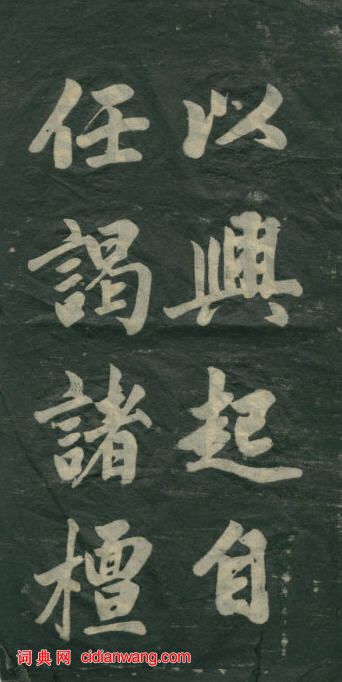 以興起自
任謁諸檀
词典网 cidianwang.com